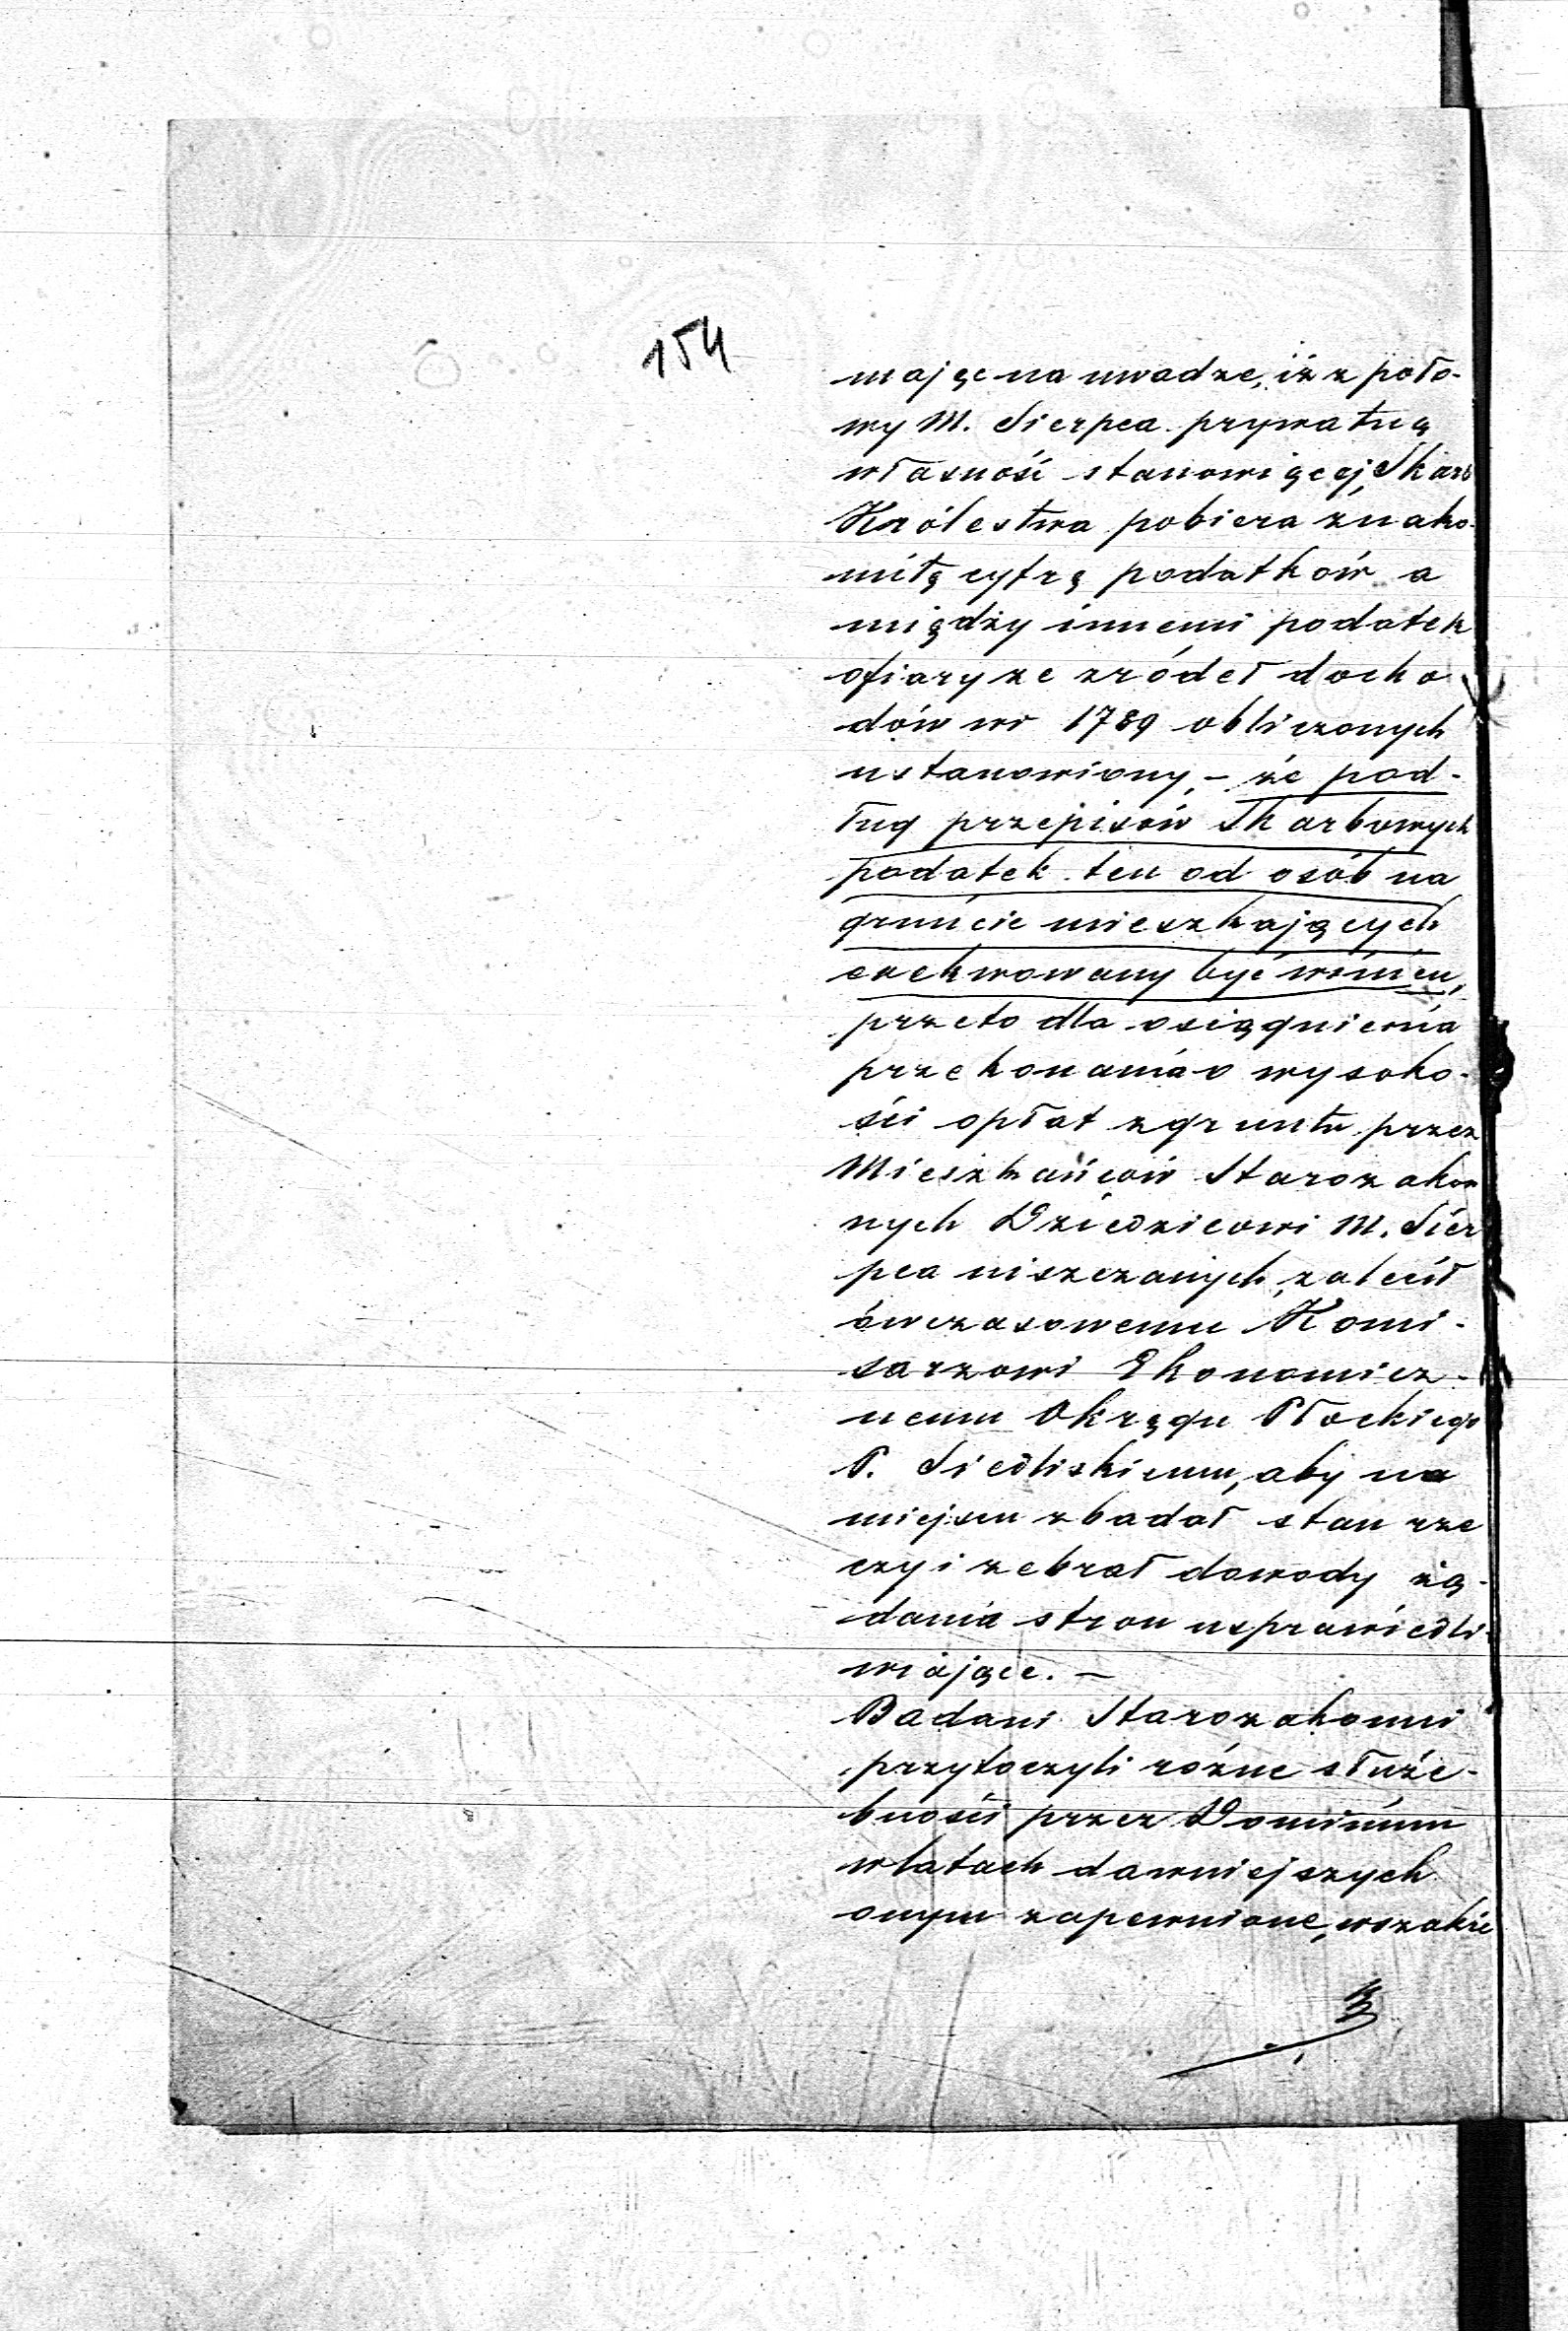 154
mając na uwadze, iż z poło-
wy M. Sierpca prywatną
własność stanowiącej, Skarb
Królestwa pobiera znako-
mitą cyfrę podatków a
między innemi podatek
ofiary ze zródeł docho
dów w r 1789 obliczonych
ustanowiony, - że pod-
ług przepisów Skarbowych
podatek ten od osób na
gruńcie mieszkających
exekwowany być winien,
przeto dla osiągnienia
przekonania o wysoko-
ści opłat z gruntu przez
Mieszkańców Starozakon
nych Dziedzicowi M. Sier
pca uiszczanych, zalecił
ówczasowemu Komi-
sarzowi Ekonomicz-
nemu Okręgu Płockiego
P. Siedliskiemu, aby na
miejscu zbadał stan rze
czy i zebrał dowody żą-
dania stron usprawiedli-
wiające. —
Badani Starozakonni
przytoczyli rożne służe-
bności przez Dominium
w latach dawniejszych
onym zapewnione, wszakże